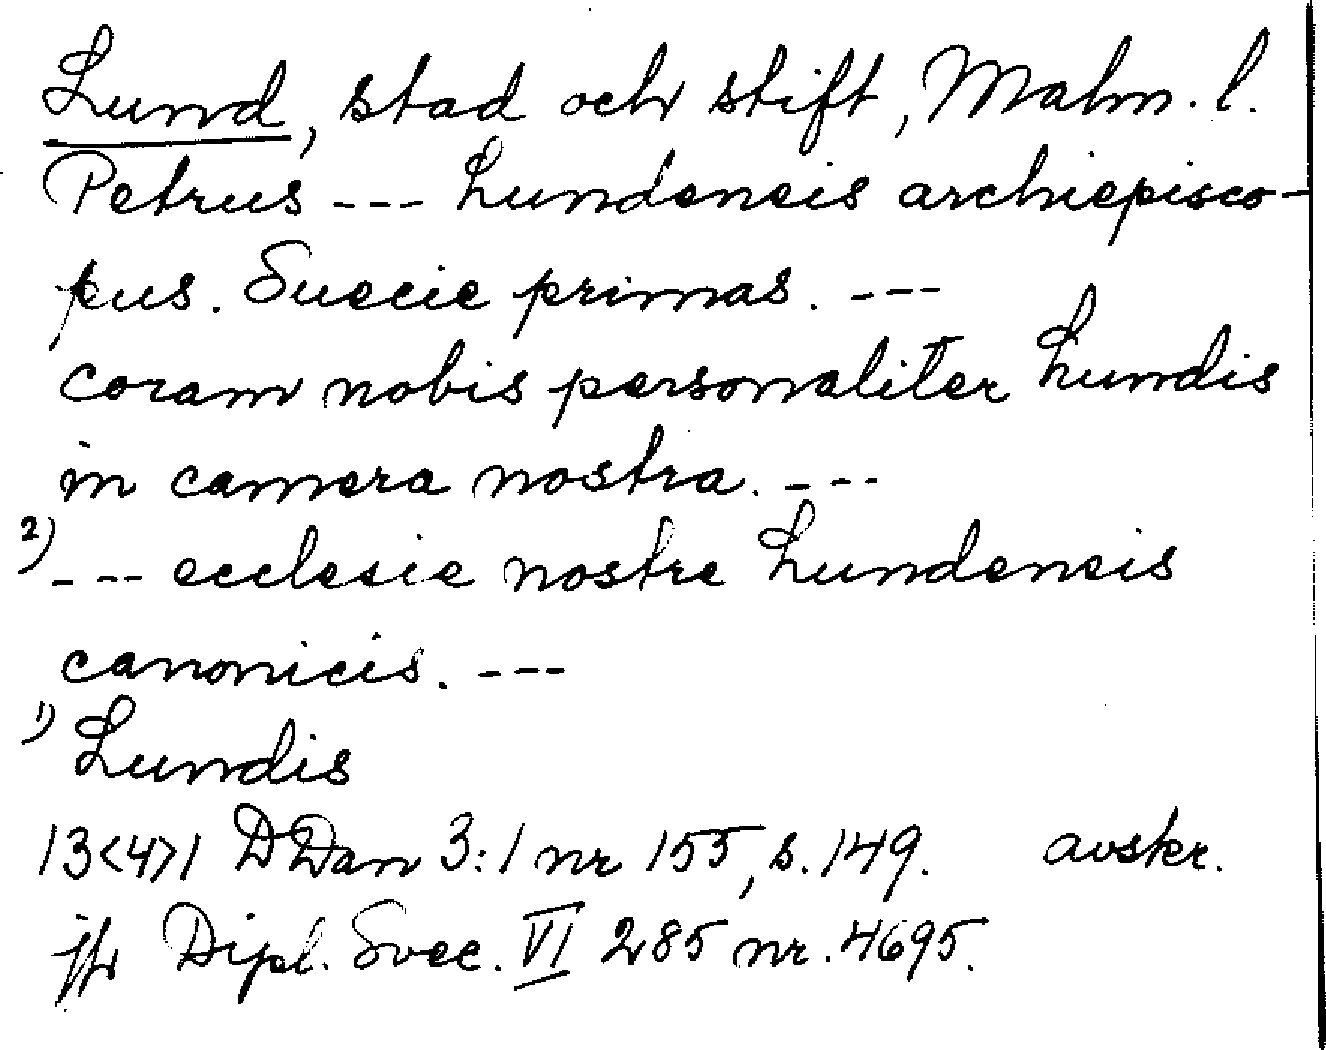 Lund, stad och stift, Malm. l.
Petrus --- Lundensis archiepisco-
pus. Suecie primas. ---
coram nobis personaliter Lundis
in camera nostra. ---
2) --- ecclesie nostre Lundensis
canonicis. ---
1) Lundis
13<4>1 DDan 3:1 nr 155, s. 149. avskr.
jfr Dipl. Svec. VI 285 nr. 4695.